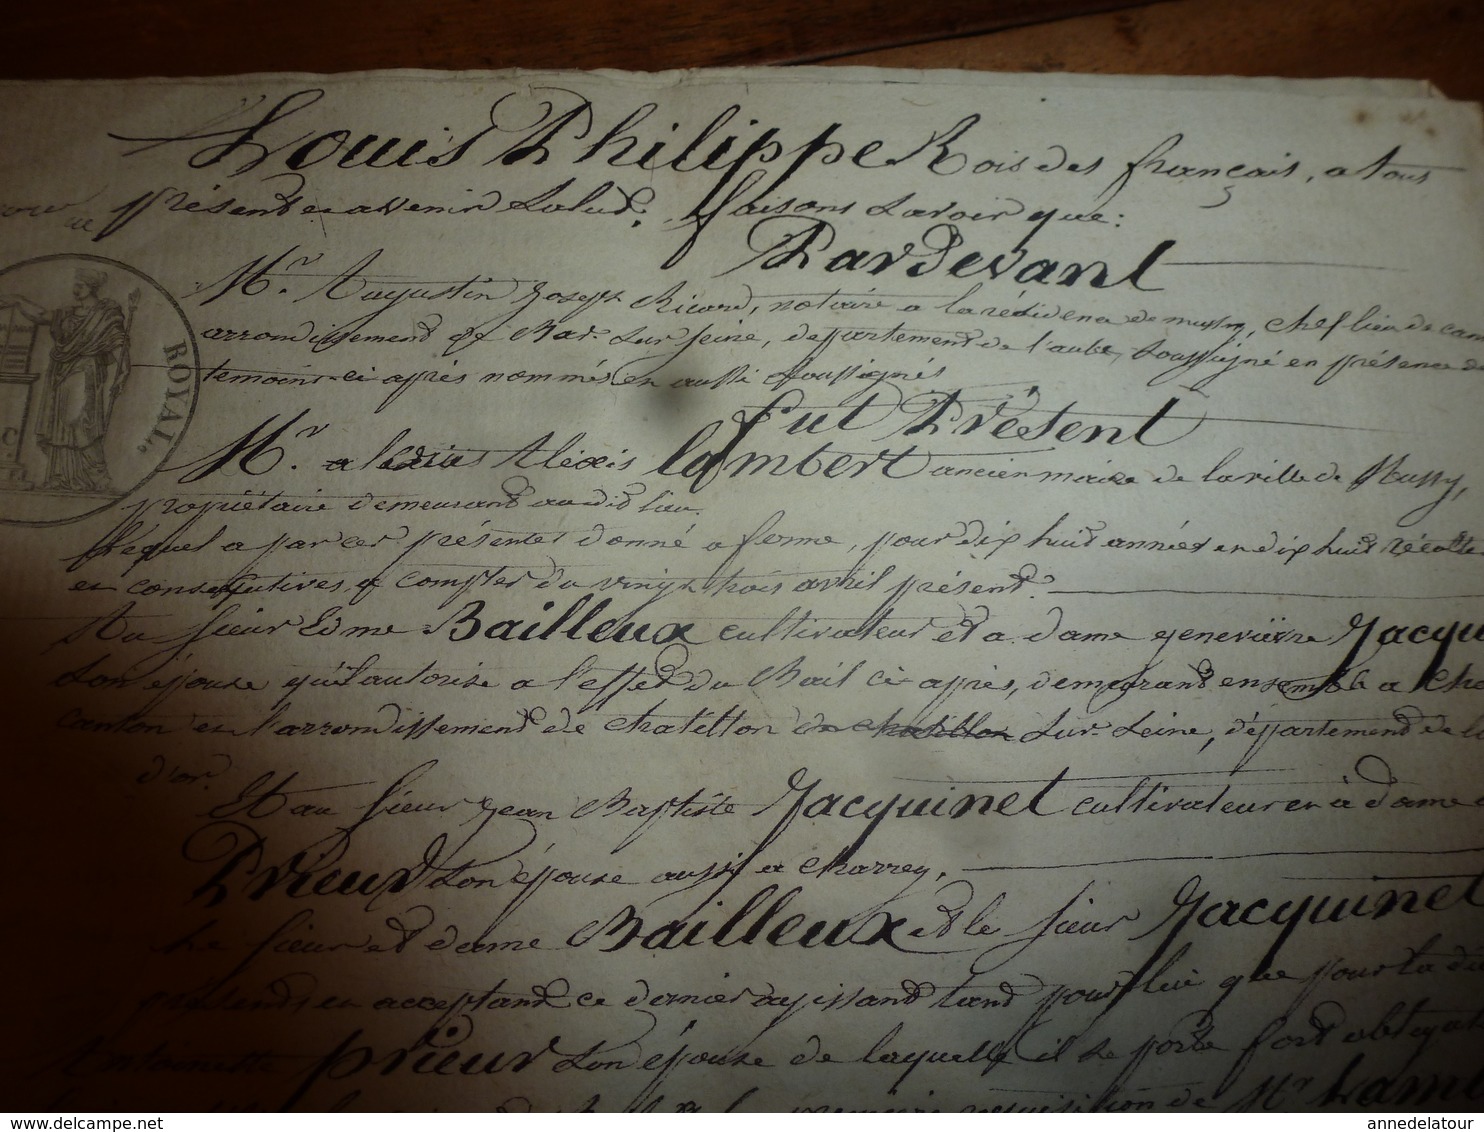 Louis Philippe Rois des français, a tous
présent et avenir Salut, faisons Savoir que:
Pardevant
Mr. Augustin Joseph Ricard, notaire a la résidence de mussy, chef lieu de can
arrondissement de Bar-Sur Seine, département de l'aube, Soussigné en présence de
temoins ci après nommés et aussi Soussignés
fut Présent
Mr. Alexis Lambert ancien maire de la ville de Mussy,
propriétaire demeurant audit lieu.
Lequel a par ces présentes donné a ferme, pour dix huit années et dix huit récolte
et consecutives a compter du vingt trois avril présent.
Au Sieur Edme Bailleux cultivateur et a dame genevieve Jacqu
Son épouse qu'il autorise a l'effet du Bail ci après, demeurant ensemble a Cha
canton et l'arrondissement de chatillon de chatillon Sur Seine, département de la
d'or.
Et au Sieur Jean Baptiste Jacquinet cultivateur et à dame
Prieur Son épouse aussi a charrey,
Le Sieur et dame Bailleux et le Sieur Jacquinet
présents et acceptant ce dernier agissant tant pour lui que pour la d
Antoinette prieur Son épouse de laquelle il se porte fort
premiere requisition de Mr Lam
ROYAL
annedelatour